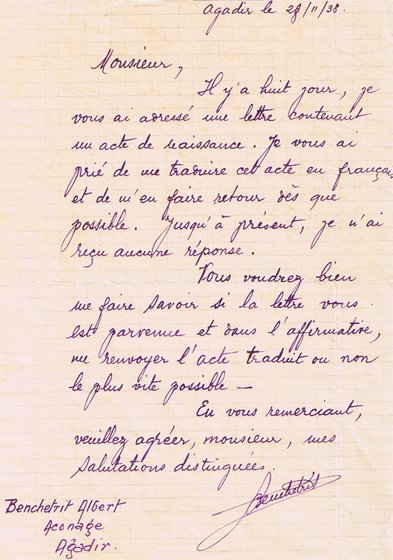 Agadir le 28/11/38.
Monsieur,
Il y'a huit jour, je
vous ai adressé une lettre contenant
un acte de naissance. Je vous ai
prié de me traduire cet acte en français
et de m'en faire retour dès que
possible. Jusqu'à présent, je n'ai
reçu aucune réponse.
Vous voudrez bien
me faire savoir si la lettre vous
est parvenue et dans l'affirmative,
me renvoyer l'acte traduit ou non
le plus vite possible —
En vous remerciant,
veuillez agréer, monsieur, mes
salutations distinguées.
Benchetrit
Benchetrit Albert
Aconage
Agadir.